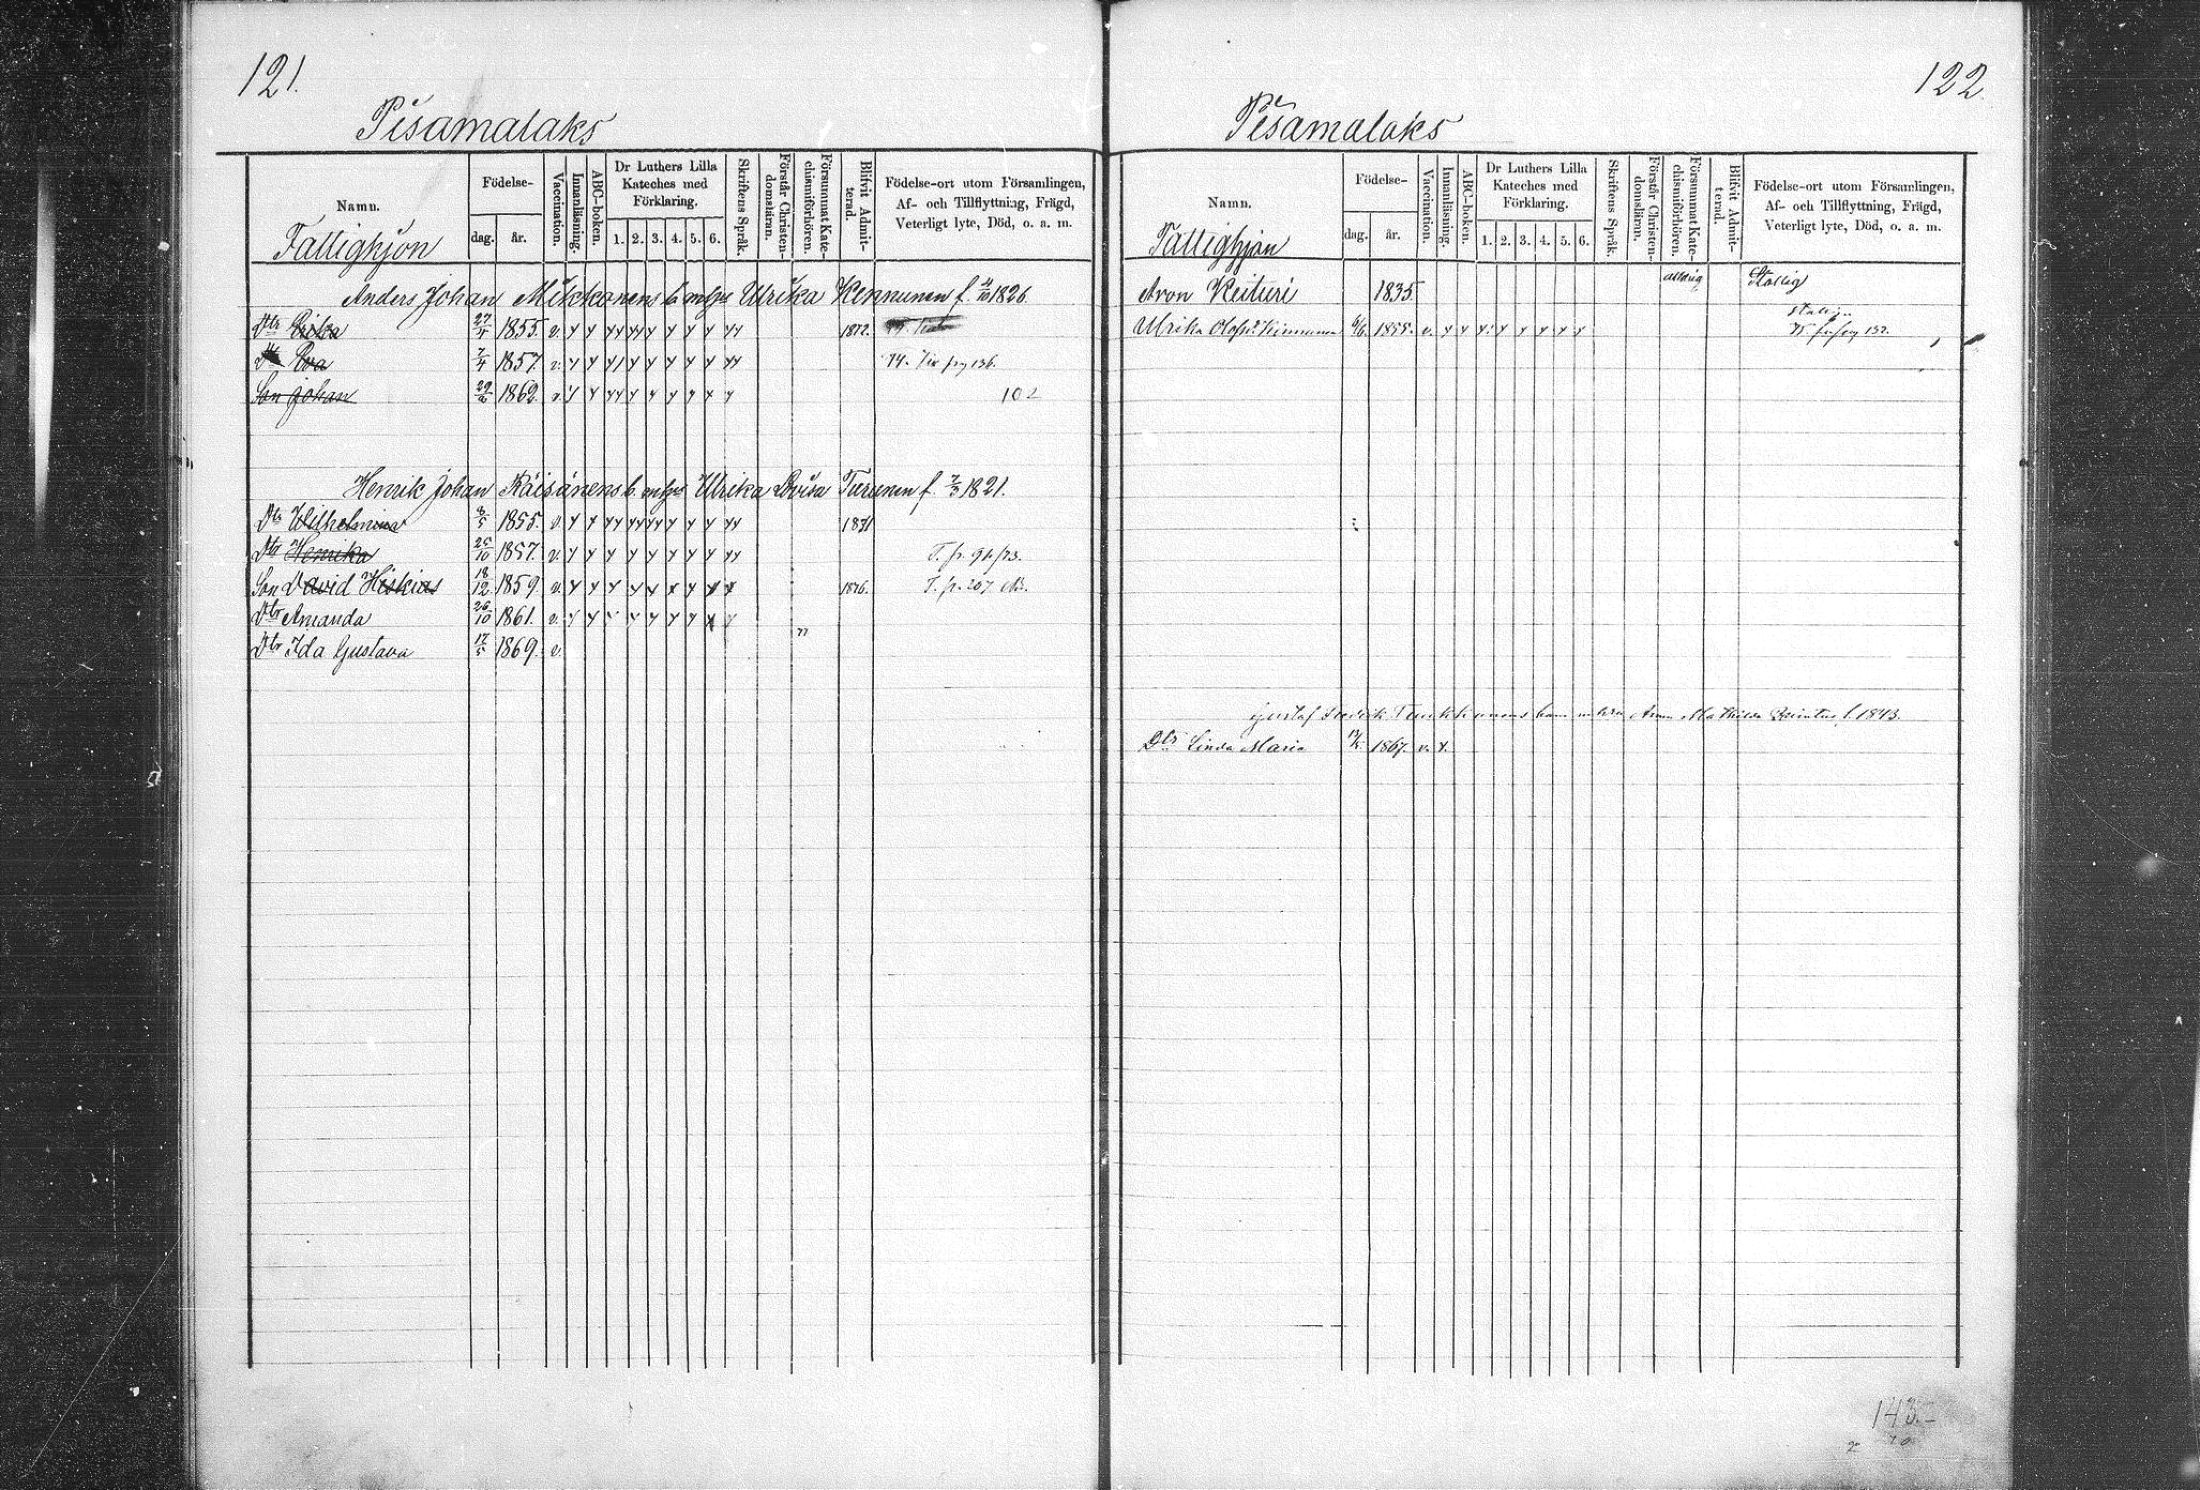 121.
Pisamalaks
Namn.
Födelse-
dag.
år.
Vaccination.
Innanläsning.
ABC-boken.
Dr Luthers Lilla
Kateches med
Förklaring.
1. 2. 3. 4. 5. 6.
Skriftens Språk.
Förstår Christen-
domsläran.
Försummat Kate-
chismiförhören.
Blifvit Admit-
terad.
Födelse-ort utom Församlingen,
Af- och Tillflyttning, Frägd,
Veterligt lyte, Död, o. a. m.
Fattighjon
Anders Johan Mikkonens b. Ulrika Kennunen f. 1826.
Dtr 27 1855. v. 1872.
Dtr Eva 7/4 1857. v. 74. fr pag 136.
Son Johan 29 1862. v. 102
Henrik Johan Räisänens b. Ulrika Lovisa Turunen f. 7/3 1821.
Dtr Wilhelmina 8/5 1855. v. 1871
Dtr Henrika 25/10 1857. v. T. p. 94/73.
Son David Hiskias 18/12 1859. v. 1876. T. p. 207
Dtr Amanda 26/10 1861. v.
Dtr Ida Gustava 17/5 1869. v.
122.
Pisamalaks
Namn.
Födelse-
dag.
år.
Vaccination.
Innanläsning.
ABC-boken.
Dr Luthers Lilla
Kateches med
Förklaring.
1. 2. 3. 4. 5. 6.
Skriftens Språk.
Förstår Christen-
domsläran.
Försummat Kate-
chismiförhören.
Blifvit Admit-
terad.
Födelse-ort utom Församlingen,
Af- och Tillflyttning, Frägd,
Veterligt lyte, Död, o. a. m.
Fattighjon
Aron Keituri 1835. aldrig
Ulrika Olofsd. Kinnunen 1855. v. 75 pag 132.
Gustaf Fredrik Anna Mathilda f. 1843.
Dtr Linda Maria 1867. v.
143.